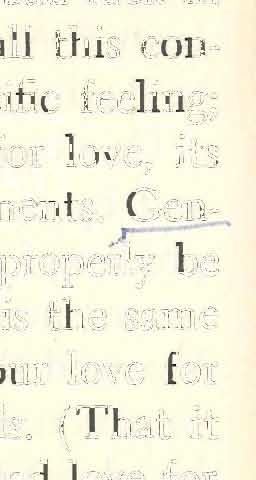 all this con-
ific feeling;
for love, its
ments. Gen-
properly be
is the same
our love for
ls. (That it
nd love for